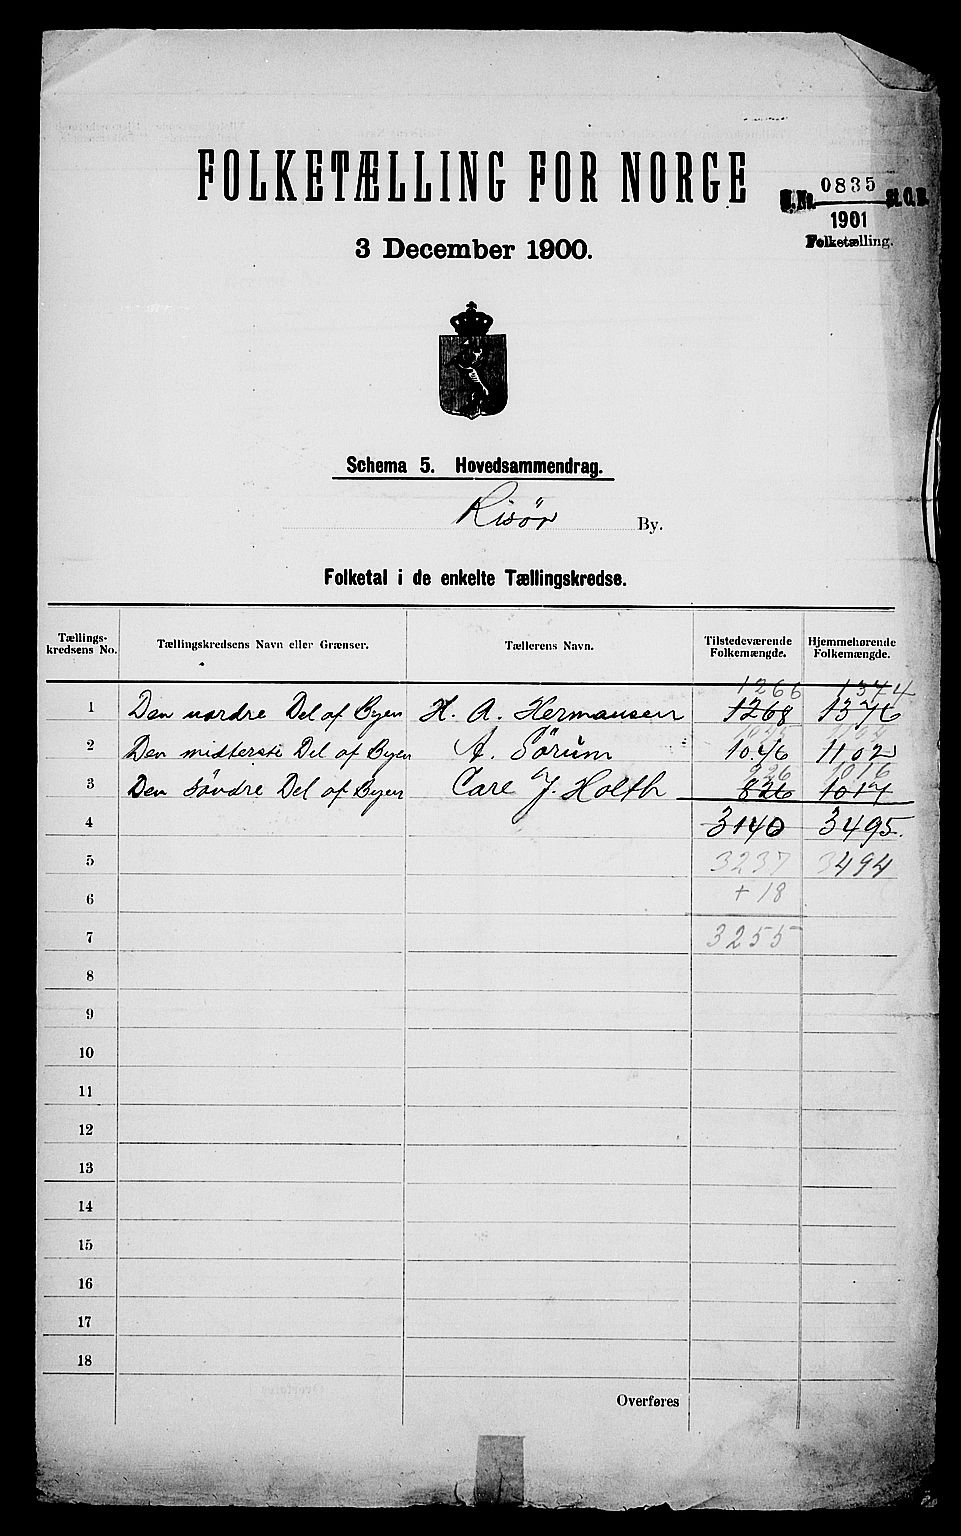 FOLKETÆLLING FOR NORGE
0835
J.No. St.C.B.
1901
Folketælling.
3 December 1900.
Schema 5. Hovedsammendrag.
Risör By.
Folketal i de enkelte Tællingskredse.
Tællings-kredsens No. Tællingskredsens Navn eller Grænser. Tællerens Navn. Tilstedeværende Folkemængde. Hjemmehørende Folkemængde.
1266 1374
1 Den nordre Del af Byen H. A. Hermansen 1268 1376
2 Den midterste Del af Byen A. Sörum 1046 1102
926 1016
3 Den Söndre Del af Byen Carl J. Holth 826 1017
4 3140 3495.
5 3237 3494
6 + 18
7 3255
8
9
10
11
12
13
14
15
16
17
18
Overføres